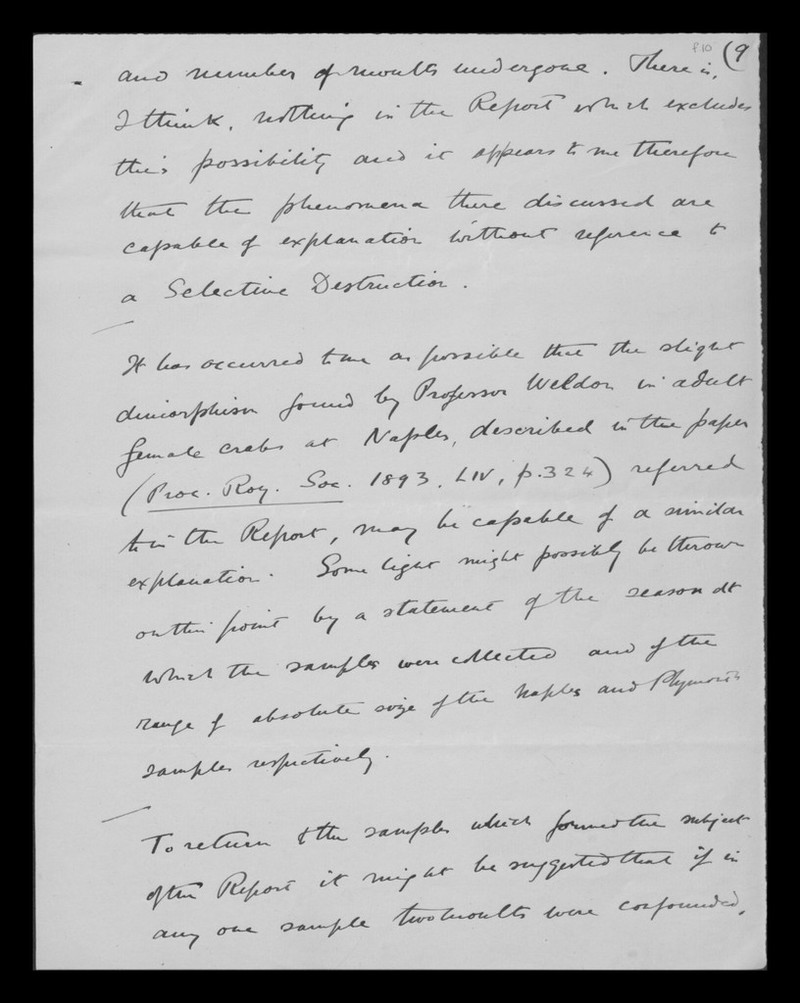 p10 (9
and number of moults undergone. There is,
I think, nothing in the Report which excludes
this possibility and it appears to me therefore
that the phenomena there discussed are
capable of explanation without reference to
a Selective Destruction.
It has occurred to me as possible that the slight
dimorphism found by Professor Weldon in adult
female crabs at Naples, described in the paper
(Proc. Roy. Soc. 1893, LIV, p.324) referred
to in the Report, may be capable of a similar
explanation. Some light might possibly be thrown
on this point by a statement of the season at
which the samples were collected and of the
range of absolute size of the Naples and Plymouth
samples respectively.
To return to the samples which formed the subject
of the Report it might be suggested that if in
any one sample two moults were confounded,